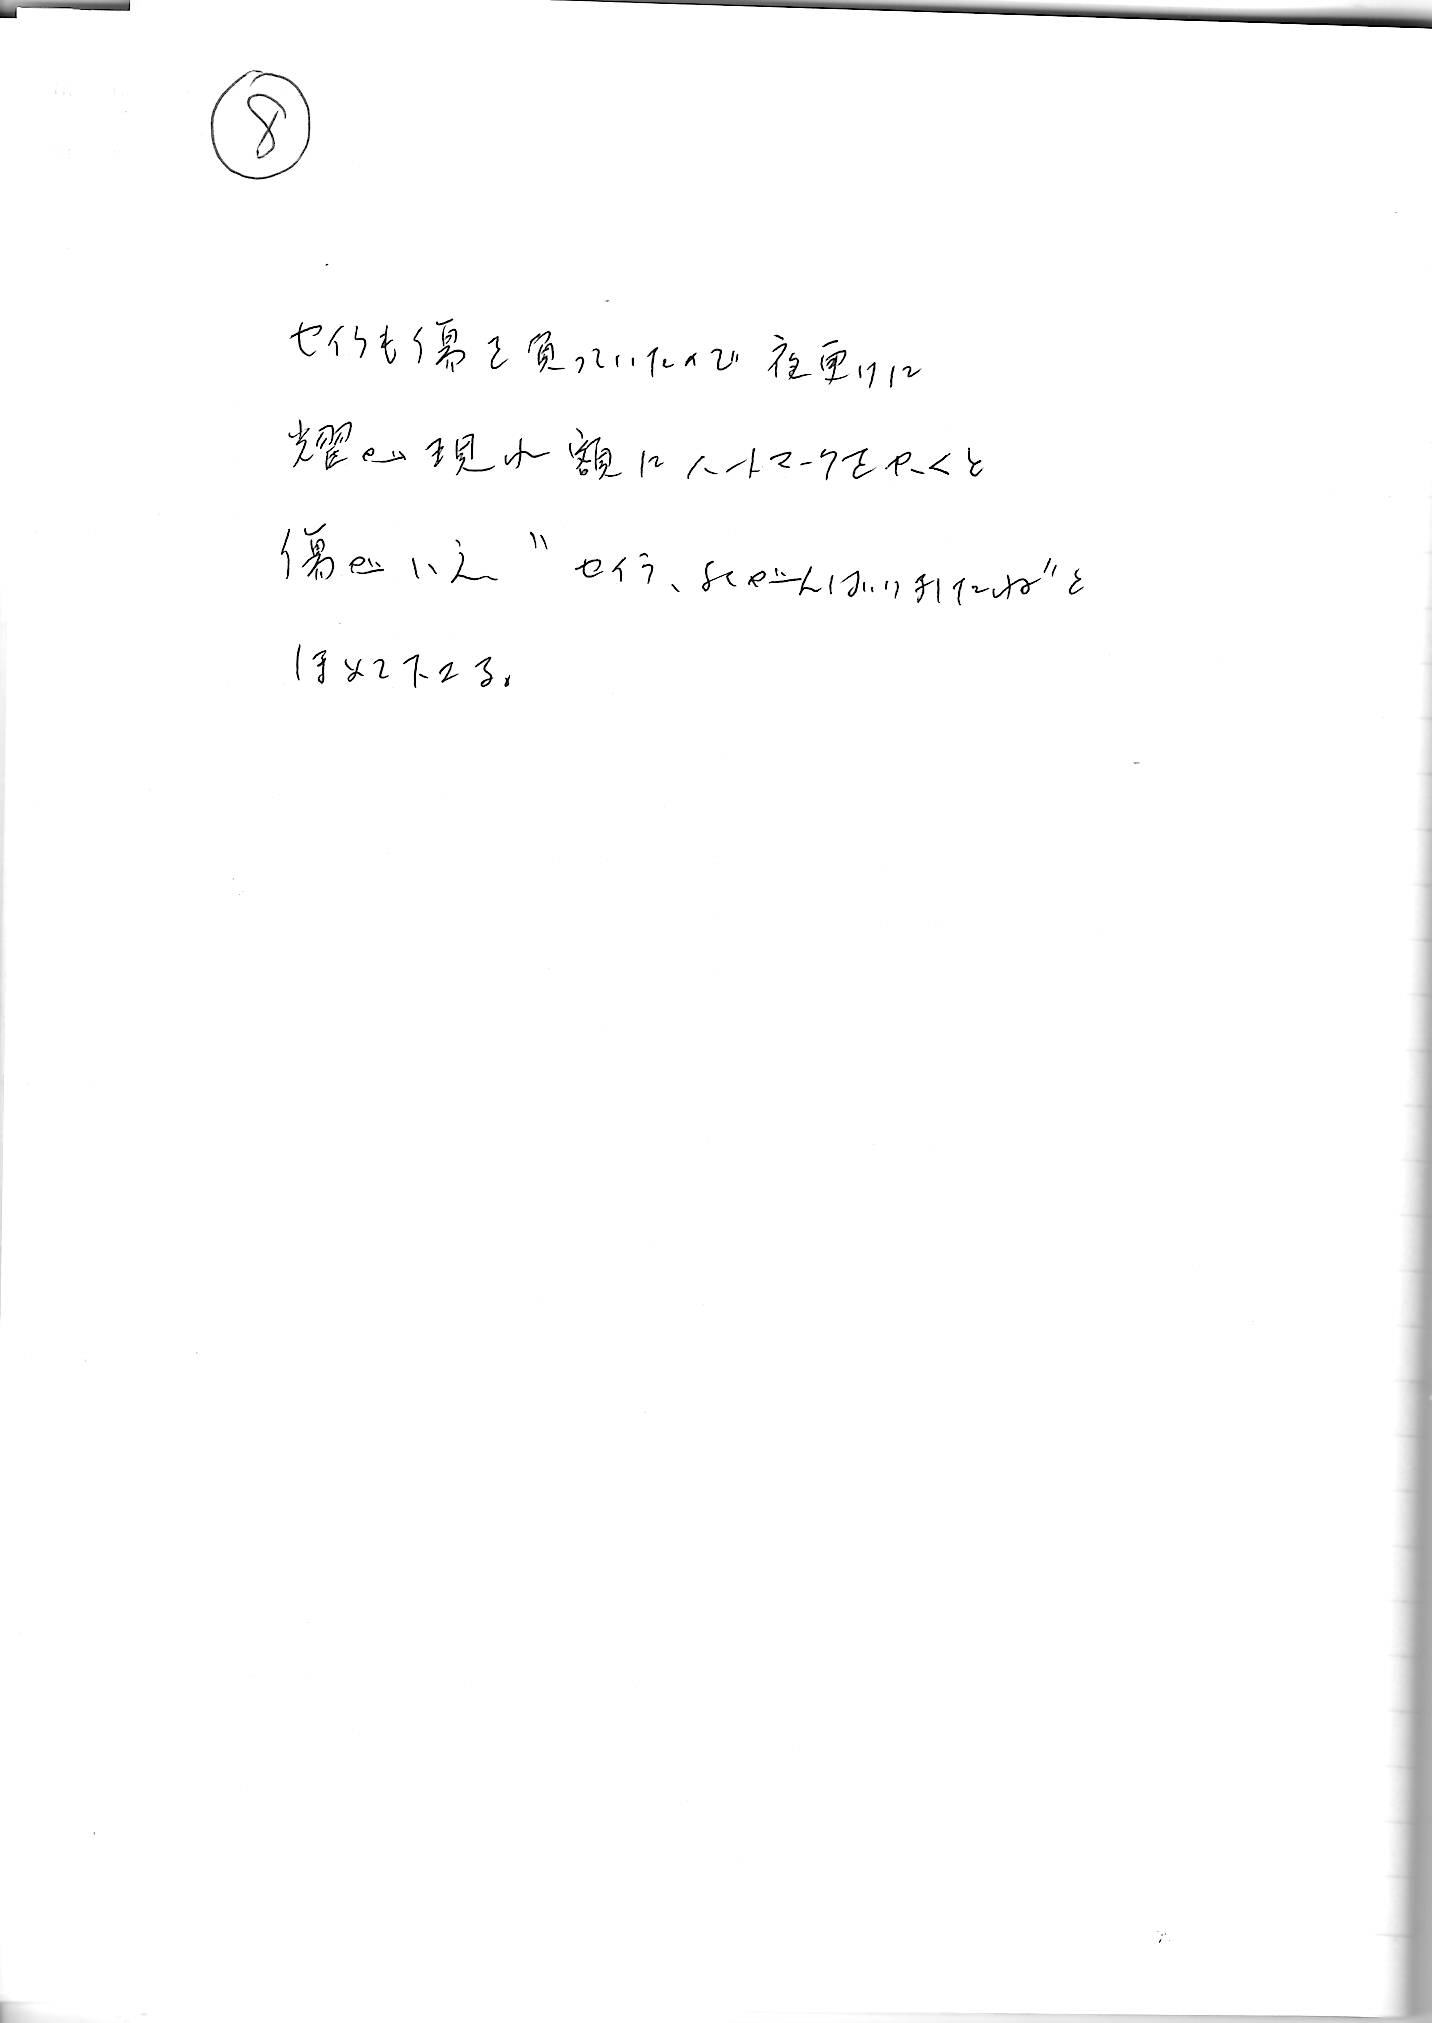 ⑧
セイラも傷を負っていたので夜更けに
耀が現れ額にハートマークをかくと
傷がいえ〝セイラ、よくがんばりましたね〟と
ほめて下さる。